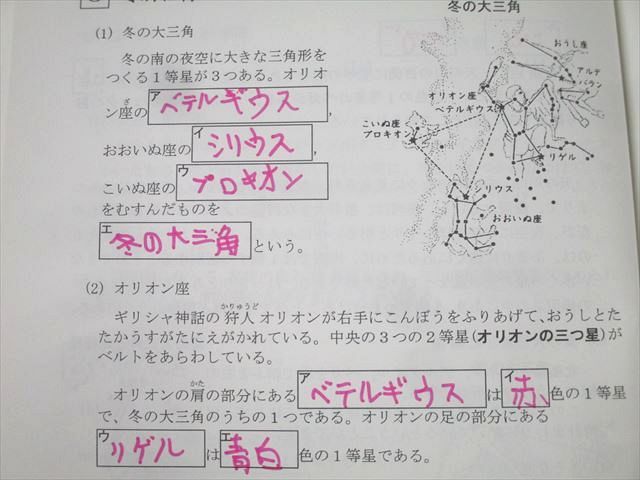 冬の大三角
(1) 冬の大三角
冬の南の夜空に大きな三角形を
つくる1等星が3つある。オリオ
ン座の ア ベテルギウス ,
おおいぬ座の イ シリウス ,
こいぬ座の ウ プロキオン
をむすんだものを
エ 冬の大三角 という。
おうし座
アルデ
バラン
オリオン座
ベテルギウス
こいぬ座
プロキオン
リゲル
シリウス
おおいぬ座
(2) オリオン座
ギリシャ神話の狩人オリオンが右手にこんぼうをふりあげて、おうしとた
たかうすがたにえがかれている。中央の3つの2等星(オリオンの三つ星)が
ベルトをあらわしている。
オリオンの肩の部分にある ア ベテルギウス は イ 赤 色の1等星
で、冬の大三角のうちの1つである。オリオンの足の部分にある
ウ リゲル は エ 青白 色の1等星である。